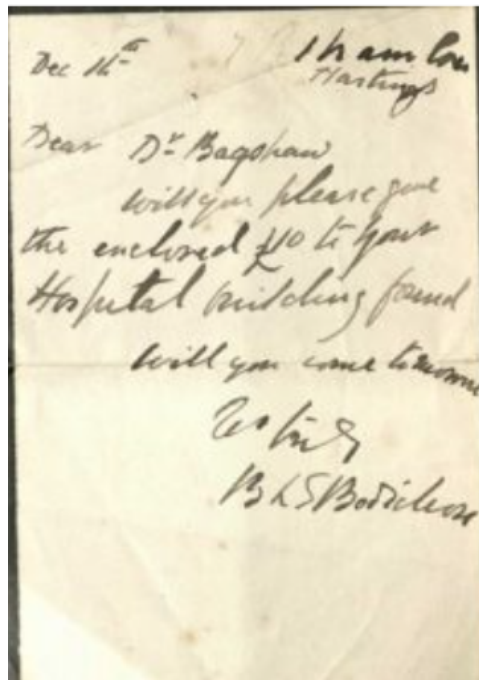 Dec 16th
Hastings
Dear Dr Bagshaw
will you please give
the enclosed £10 to your
Hospital building fund
will you come tomorrow
B L S Bodichon